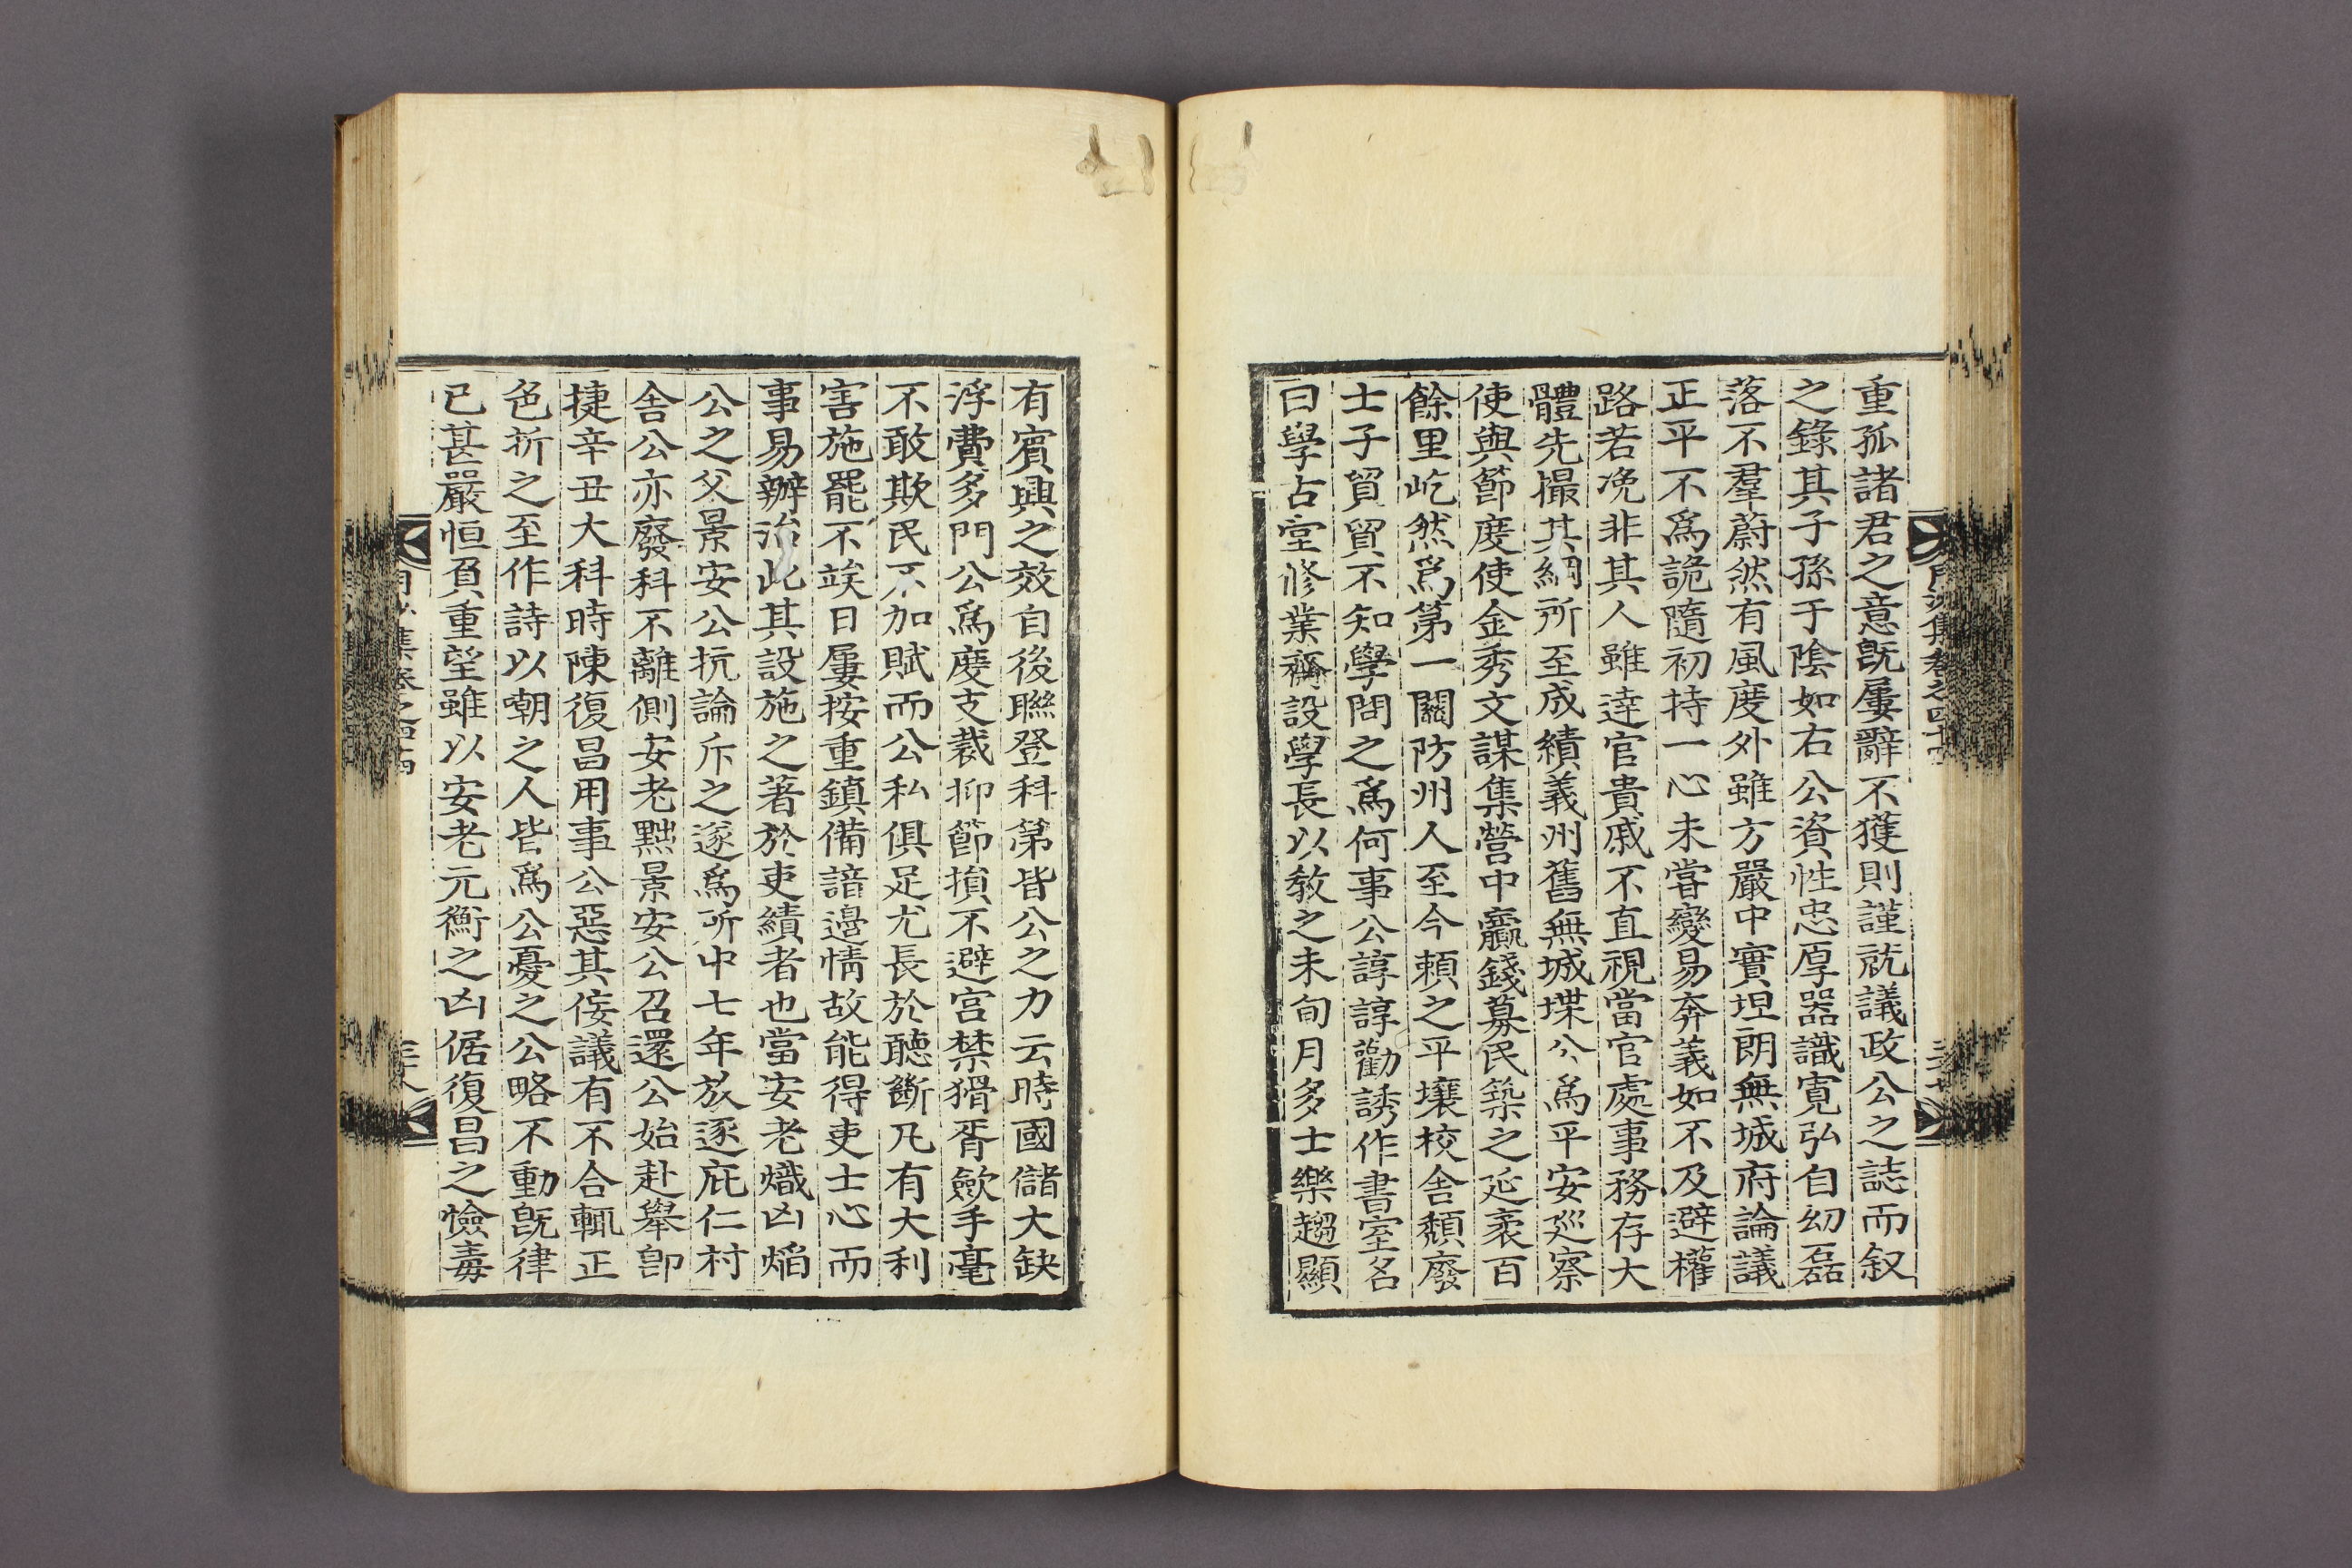 重孤諸君之意旣屢辭不獲則謹就議政公之誌而叙
之錄其子孫于陰如右公資性忠厚器識寬弘自幼磊
落不羣蔚然有風度外雖方嚴中實坦朗無城府論議
正平不爲詭隨初持一心未嘗變易奔義如不及避權
路若浼非其人雖達官貴戚不直視當官處事務存大
體先撮其綱所至成績義州舊無城堞公爲平安廵察
使與節度使金秀文謀集營中羸錢募民築之延袤百
餘里屹然爲第一關防州人至今賴之平壤校舍頹廢
士子貿貿不知學問之爲何事公諄諄勸誘作書室名
曰學古堂修業齋設學長以敎之未旬月多士樂趨顯
有賓興之效自後聯登科第皆公之力云時國儲大缺
浮費多門公爲度支裁抑節損不避宮禁猾胥歛手毫
不敢欺民不加賦而公私俱足尤長於聽斷凡有大利
害施罷不竢日屢按重鎭備諳邉情故能得吏士心而
事易辦治此其設施之著於吏績者也當安老熾凶焰
公之父景安公抗論斥之遂爲所中七年放逐庇仁村
舍公亦廢科不離側安老黜景安公召還公始赴擧卽
捷辛丑大科時陳復昌用事公惡其侫議有不合輒正
色折之至作詩以嘲之人皆爲公憂之公略不動旣律
已甚嚴恒負重望雖以安老元衡之凶倨復昌之憸毒